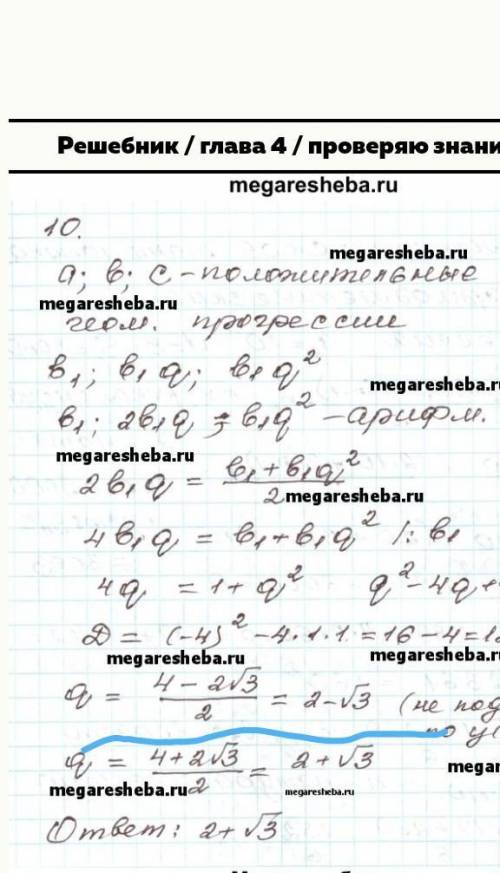 Решебник / глава 4 / проверяю знани
megaresheba.ru
10.
megaresheba.ru
a; b; c - положительные
megaresheba.ru
геом. прогрессии
b₁; b₁q; b₁q²
megaresheba.ru
b₁; 2b₁q; b₁q² - арифм.
megaresheba.ru
2b₁q = (b₁ + b₁q²)/2
megaresheba.ru
4b₁q = b₁ + b₁q² /: b₁
4q = 1 + q² q² - 4q +
D = (-4)² - 4·1·1 = 16 - 4 = 12
megaresheba.ru
megaresheba.ru
q = (4 - 2√3)/2 = 2 - √3 (не под
по ус
q = (4 + 2√3)/2 = 2 + √3
megare
megaresheba.ru
megaresheba.ru
Ответ: 2 + √3